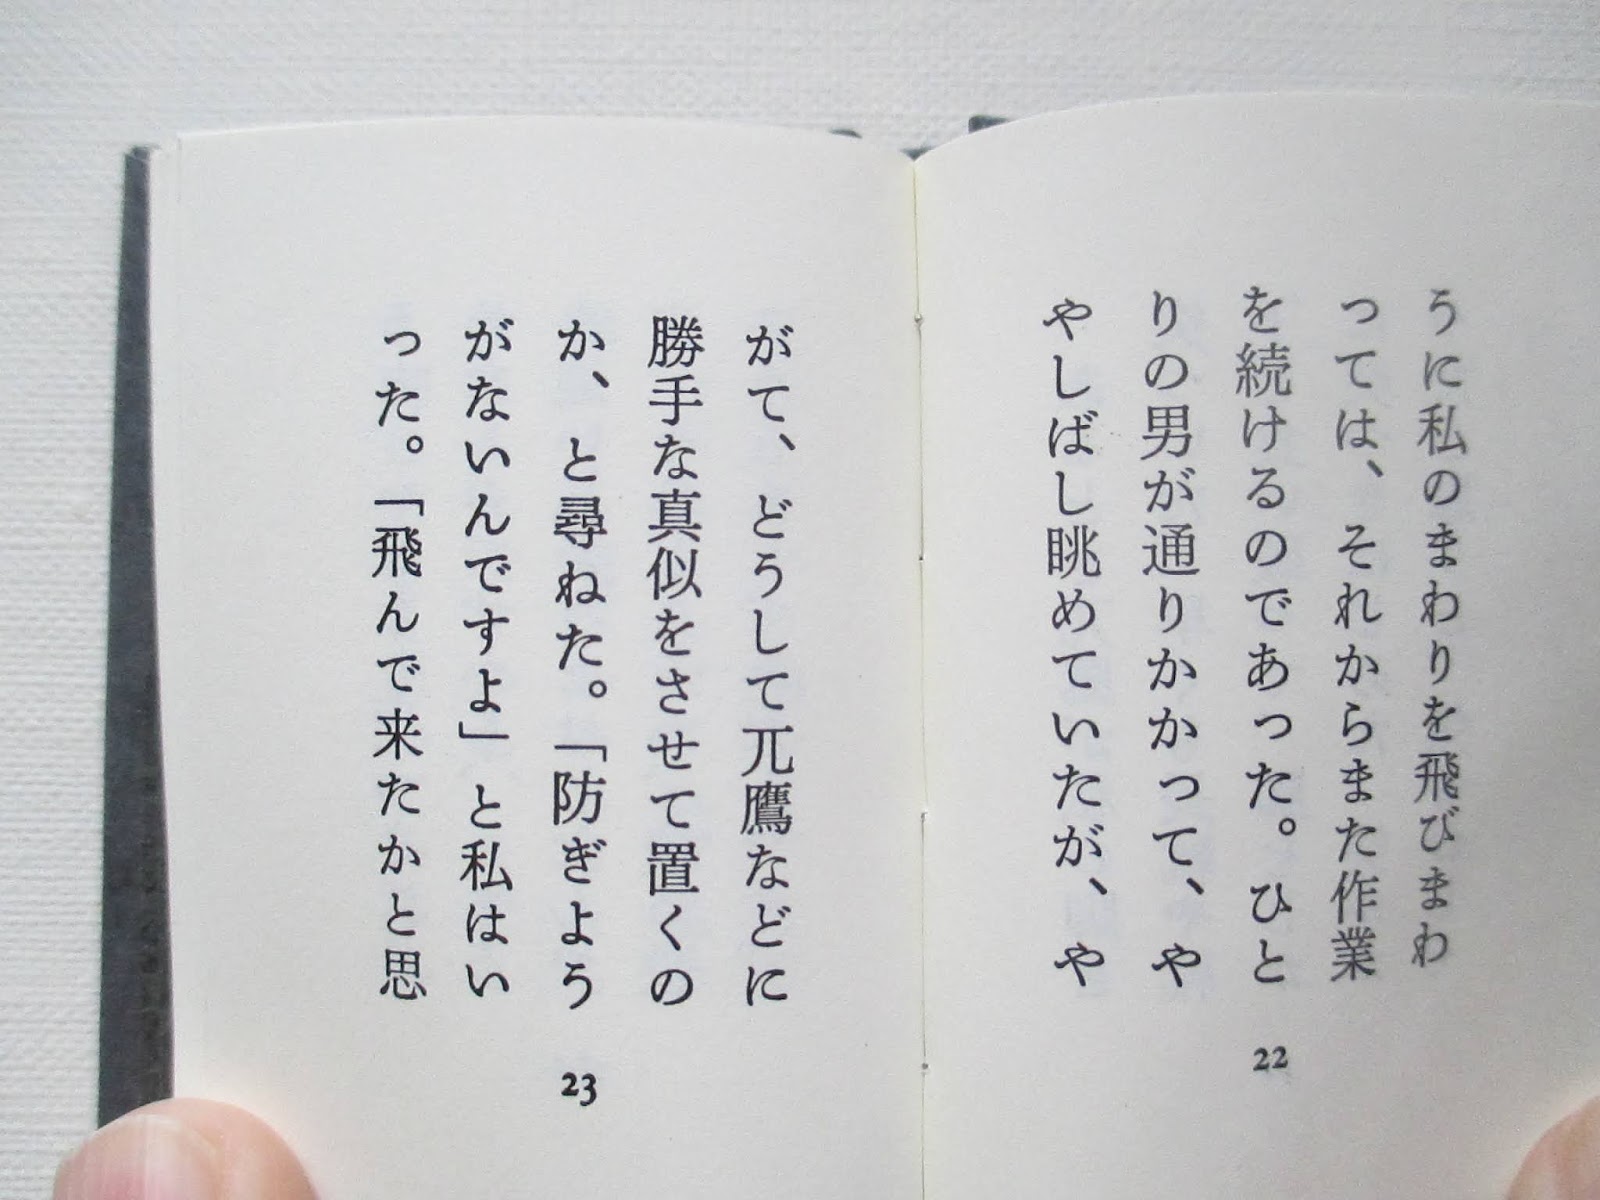 うに私のまわりを飛びまわ
っては、それからまた作業
を続けるのであった。ひと
りの男が通りかかって、や
やしばし眺めていたが、や
22
がて、どうして兀鷹などに
勝手な真似をさせて置くの
か、と尋ねた。「防ぎよう
がないんですよ」と私はい
った。「飛んで来たかと思
23